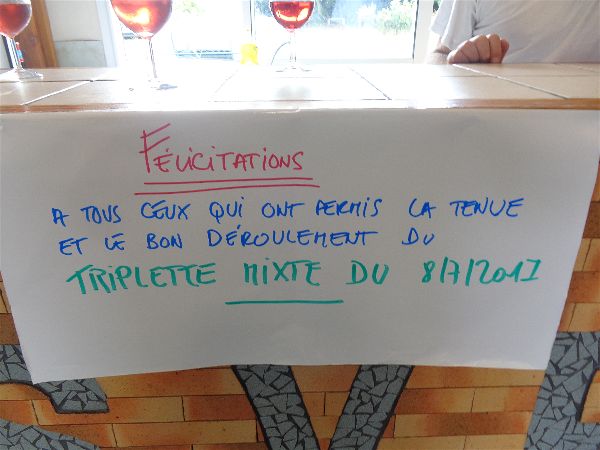 FÉLICITATIONS
A TOUS CEUX QUI ONT PERMIS LA TENUE
ET LE BON DÉROULEMENT DU
TRIPLETTE MIXTE DU 8/7/2017